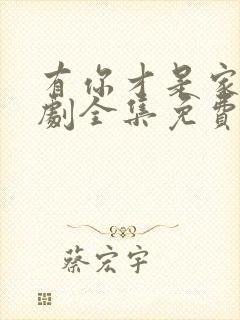 有你才是家
劇全集免費
蔡宏宇